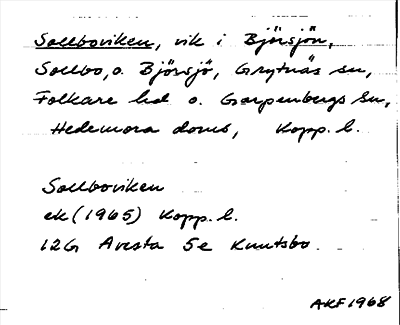 Sollboviken, vik i Björsjön,
Sollbo, o. Björsjö, Grytnäs sn,
Folkare hd o. Garpenbergs sn,
Hedemora doms, Kopp. l.
Sollboviken
ek (1965) Kopp. l.
12G Avesta 5e Knutsbo.
AKF 1968